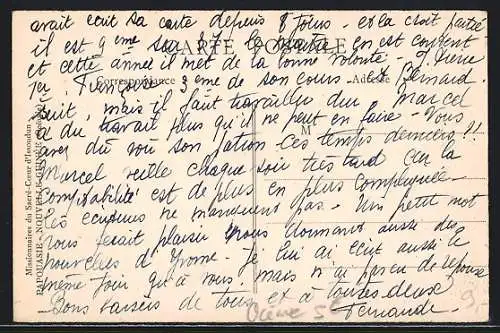 avait écrit sa carte depuis 8 jours - et la croit partie
il est 9ème sur 37 le maître en est content
CARTE POSTALE
et cette année il met de la bonne volonté - Pierre
Correspondance
Adresse
1er, Françoise 3ème de son cours - et Bernard
suit, mais il faut travailler dur Marcel
a du travail plus qu'il ne peut en faire - Vous
M
avez dû voir son ces temps derniers !!
Marcel veille chaque soir très tard car la
comptabilité est de plus en plus compliquée
les écritures ne manquent pas - Un petit mot
vous ferait plaisir vous donnant aussi des
nouvelles d'Yvonne - Je lui ai écrit aussi le
même jour qu'à vous, mais n'ai pas eu de réponse
Bons baisers de tous et à toutes deux
Fernande.
Missionnaires du Sacré-Cœur d'Issoudun
PAPOUASIE - NOUVELLE-GUINÉE